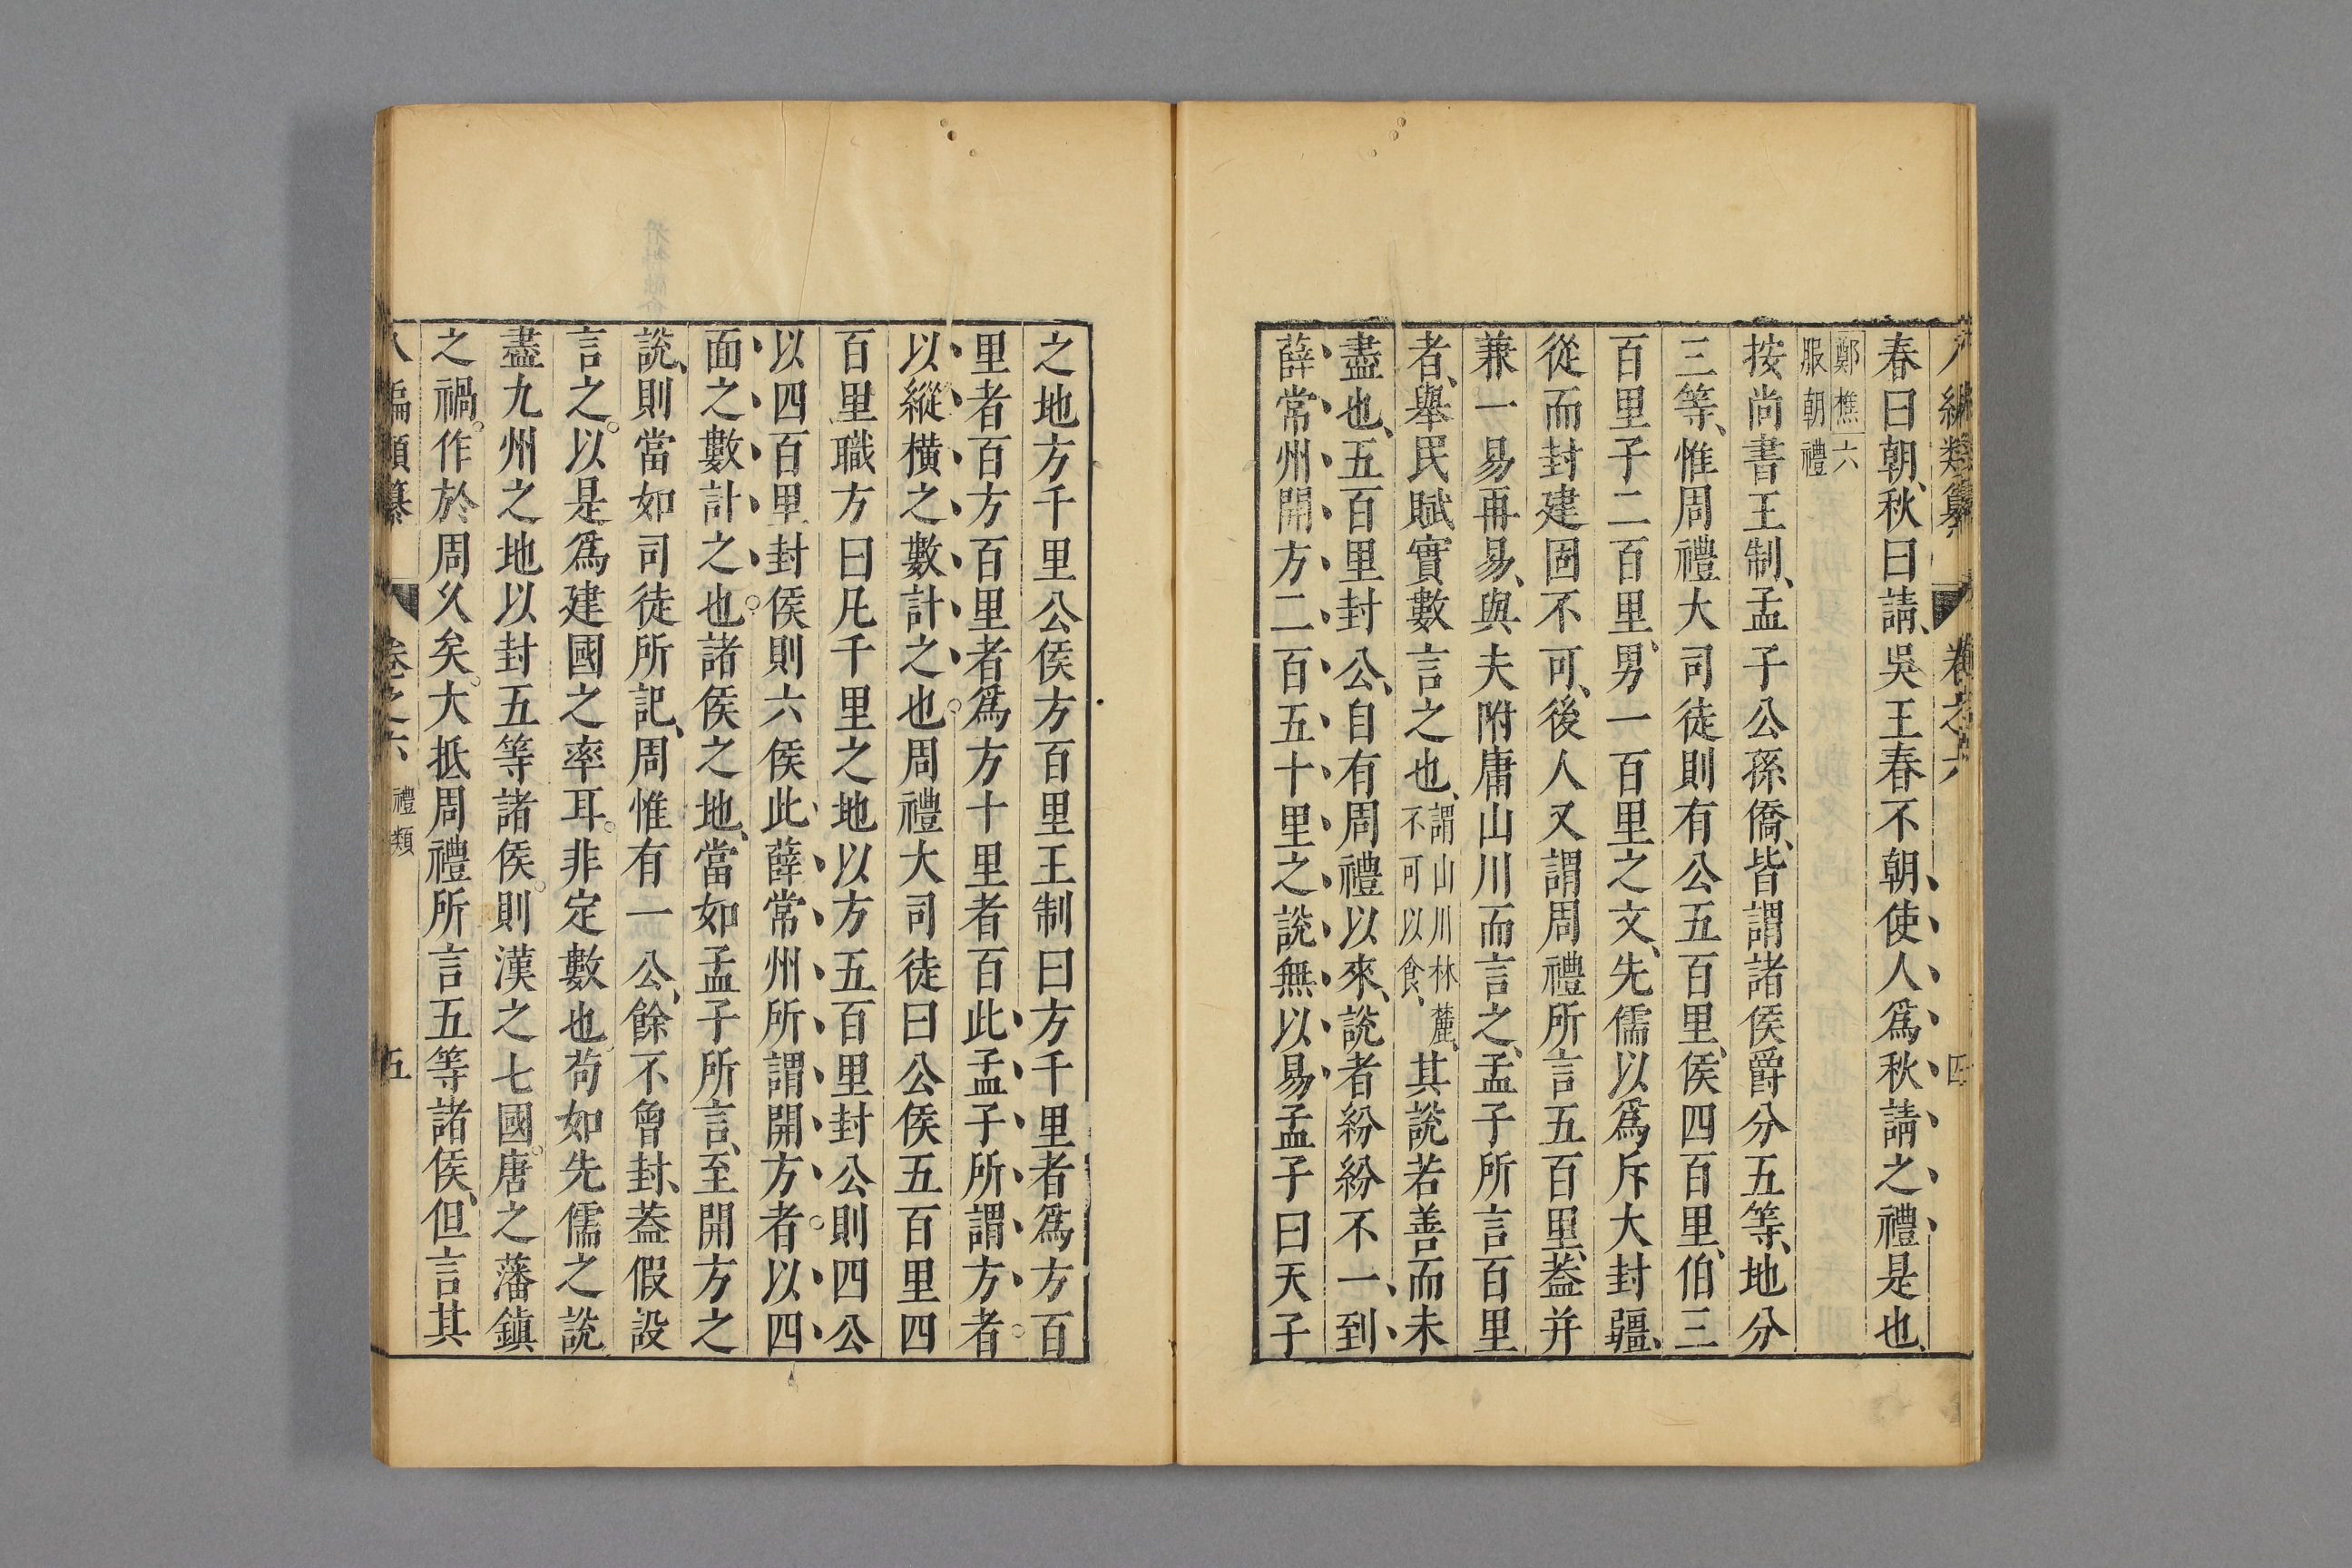 八編類纂 卷之六 四
春曰朝、秋曰請、吳王春不朝、使人爲秋請之禮是也、
鄭樵六
服朝禮
按尚書王制、孟子公孫僑、皆謂諸侯爵分五等、地分
三等、惟周禮大司徒則有公五百里、侯四百里、伯三
百里子二百里、男一百里之文、先儒以爲斥大封疆、
從而封建固不可、後人又謂周禮所言五百里、葢并
兼一易再易、與夫附庸山川而言之、孟子所言百里
者、舉民賦實數言之也、謂山川林麓、不可以食、其說若善而未
盡也、五百里封公、自有周禮以來、說者紛紛不一、到
薛常州開方二百五十里之說無以易孟子曰天子
之地方千里公侯方百里王制曰方千里者爲方百
里者百方百里者爲方十里者百此孟子所謂方者
以縱橫之數計之也周禮大司徒曰公侯五百里四
百里職方曰凡千里之地以方五百里封公則四公
以四百里封侯則六侯此薛常州所謂開方者以四
面之數計之也諸侯之地、當如孟子所言、至開方之
說、則當如司徒所記、周惟有一公、餘不曾封、葢假設
言之。以是爲建國之率耳。非定數也。苟如先儒之說
盡九州之地以封五等諸侯。則漢之七國。唐之藩鎮
之禍。作於周久矣。大抵周禮所言五等諸侯、但言其
八編類纂 卷之六 禮類 五